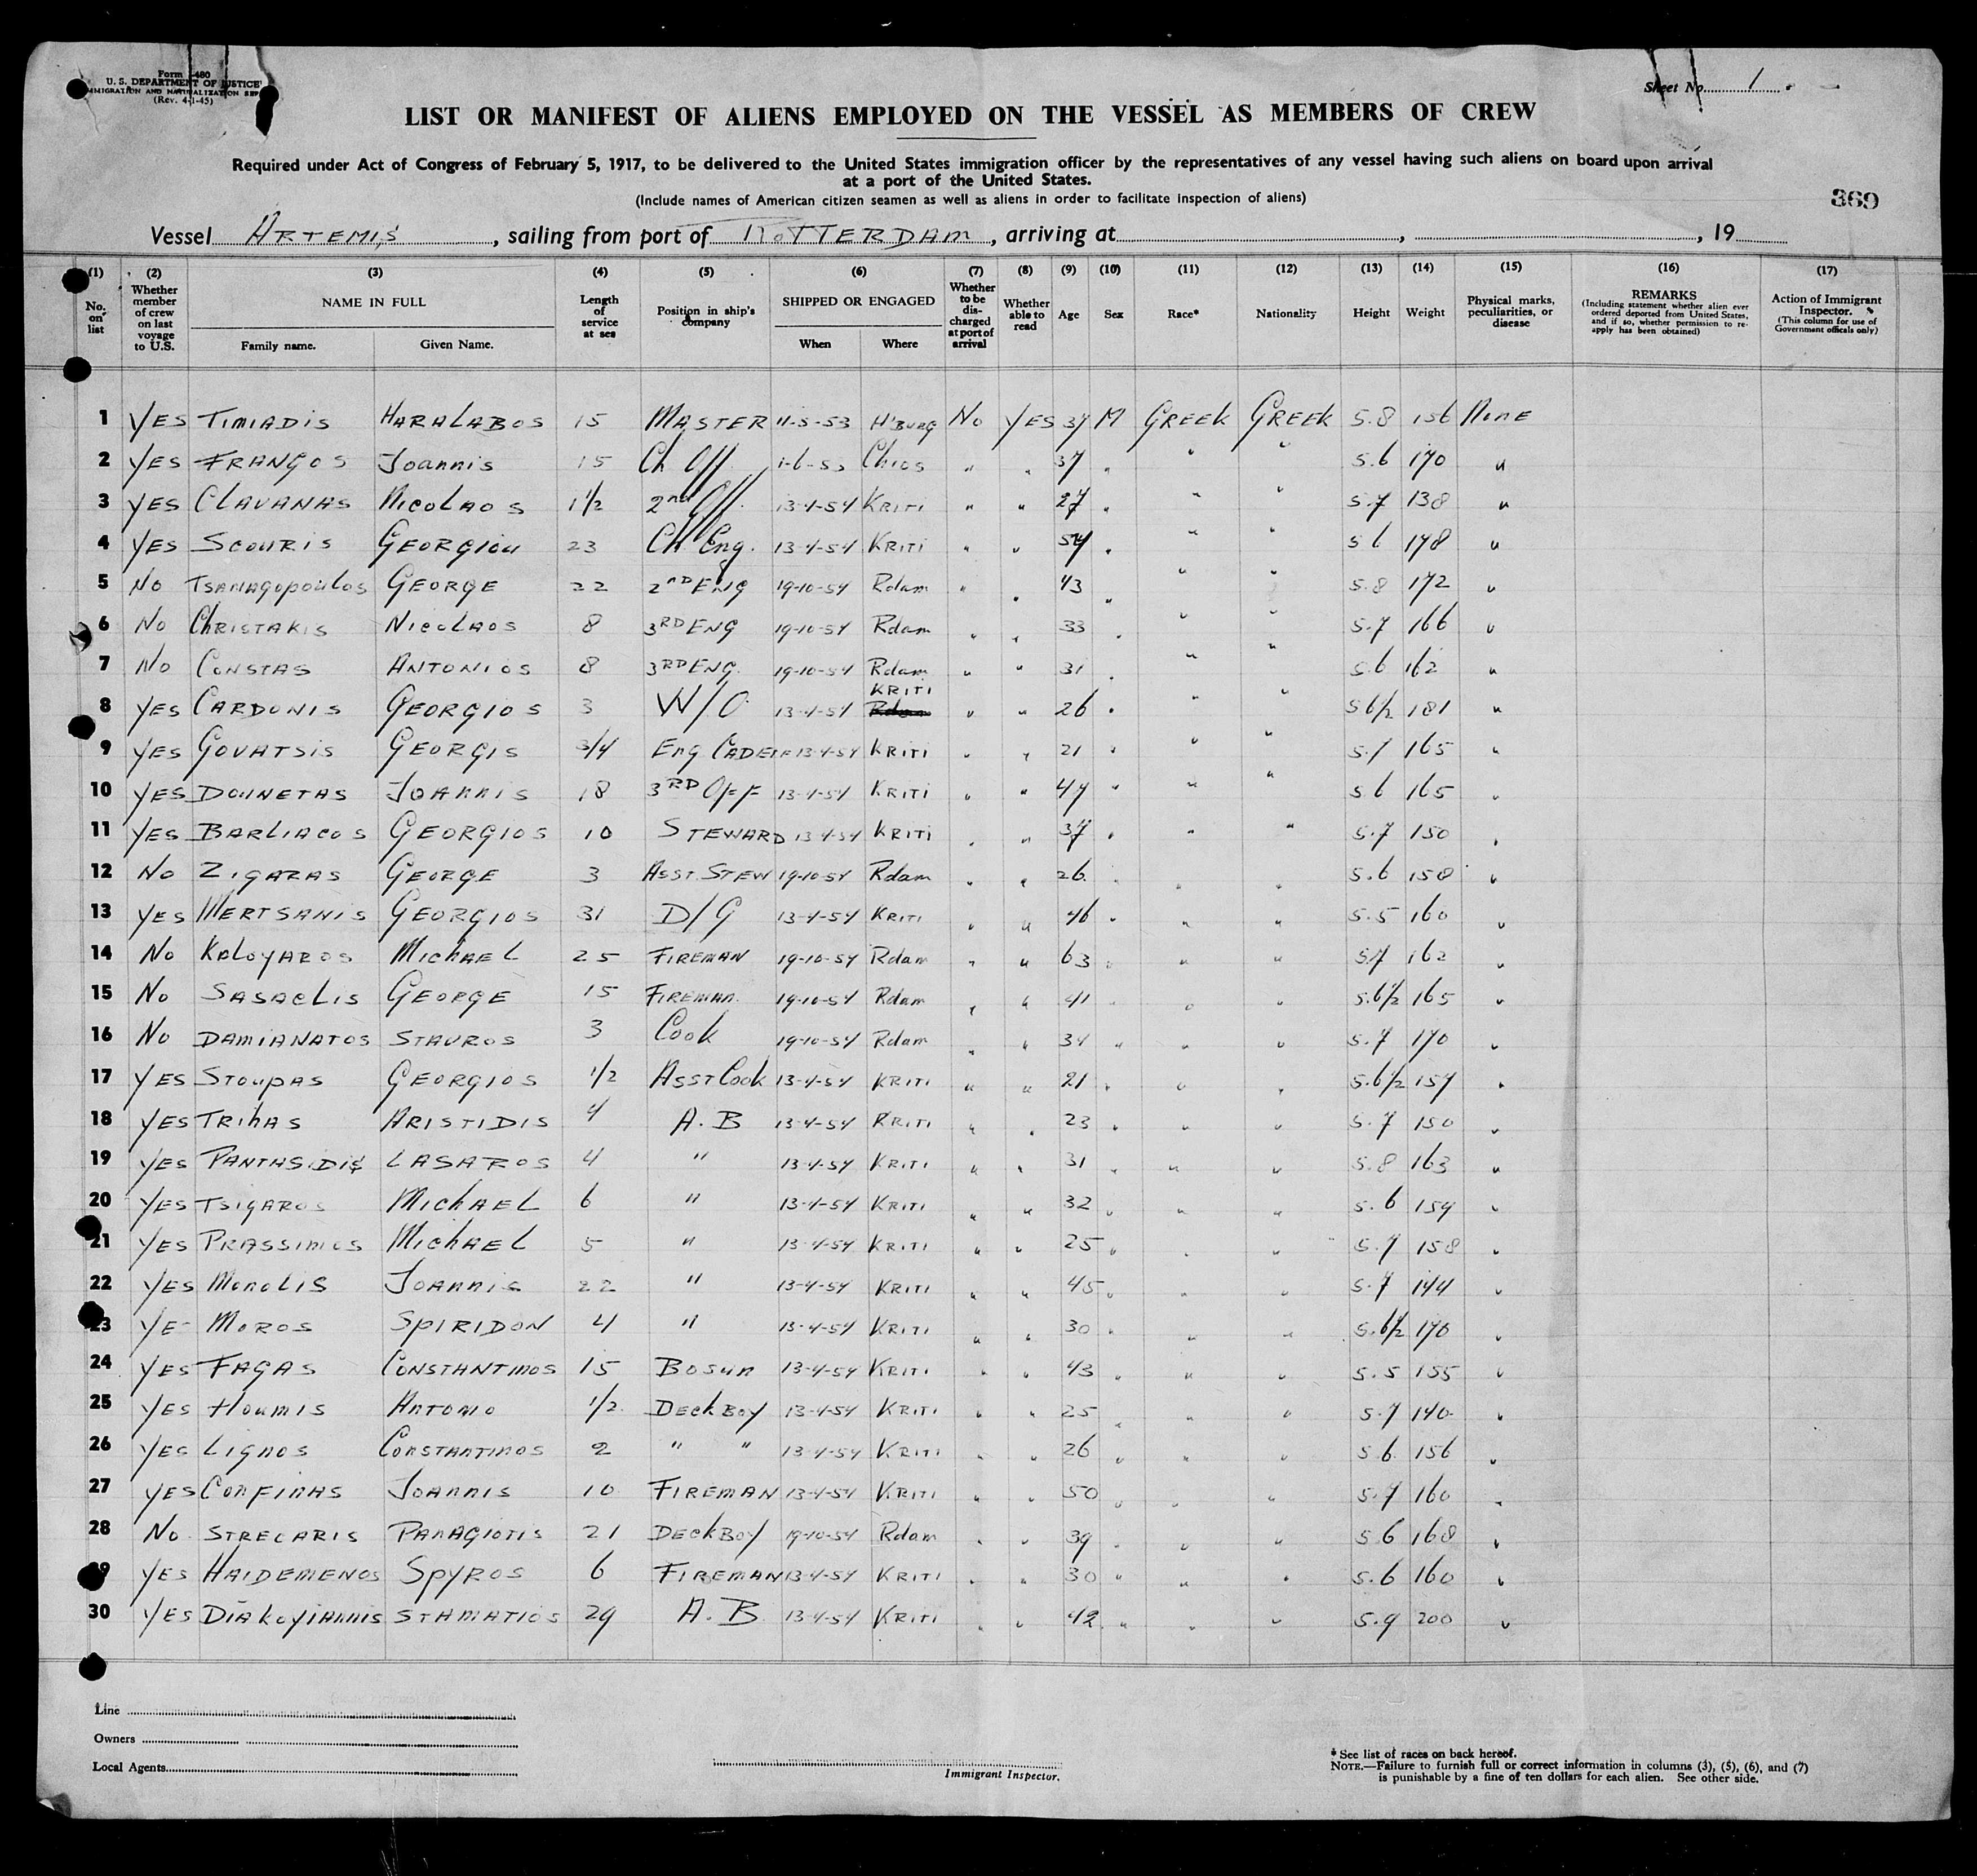 Form I-480
U. S. DEPARTMENT OF JUSTICE
IMMIGRATION AND NATURALIZATION SER
(Rev. 4-1-45)
Sheet No. 1
LIST OR MANIFEST OF ALIENS EMPLOYED ON THE VESSEL AS MEMBERS OF CREW
Required under Act of Congress of February 5, 1917, to be delivered to the United States immigration officer by the representatives of any vessel having such aliens on board upon arrival
at a port of the United States.
(Include names of American citizen seamen as well as aliens in order to facilitate inspection of aliens)
369
Vessel ARTEMIS, sailing from port of ROTTERDAM, arriving at , , 19
(1) (2) (3) (4) (5) (6) (7) (8) (9) (10) (11) (12) (13) (14) (15) (16) (17)
No. on list
Whether member of crew on last voyage to U.S.
NAME IN FULL
Family name. Given Name.
Length of service at sea
Position in ship's company
SHIPPED OR ENGAGED
When Where
Whether to be discharged at port of arrival
Whether able to read
Age
Sex
Race*
Nationality
Height
Weight
Physical marks, peculiarities, or disease
REMARKS
(Including statement whether alien ever ordered deported from United States, and if so, whether permission to re-apply has been obtained)
Action of Immigrant Inspector.
(This column for use of Government officals only)
1 YES TIMIADIS HARALABOS 15 MASTER 11-5-53 H'BURG No YES 37 M GREEK GREEK 5.8 156 NONE
2 YES FRANGOS Joannis 15 Ch Off 1-6-53 Chios " " 37 " " " 5.6 170 "
3 YES CLAVANAS NICOLAOS 1 1/2 2nd Off. 13-4-54 KRITI " " 27 " " " 5.7 138 "
4 YES SCOURIS GEORGIOU 23 Ch Eng. 13-4-54 KRITI " " 54 " " " 5 6 178 "
5 No TSANAGOPOULOS GEORGE 22 2ND ENG 19-10-54 Rdam " " 43 " " " 5.8 172 "
6 No CHRISTAKIS NICOLAOS 8 3RD ENG 19-10-54 Rdam " " 33 " " " 5.7 166 "
7 No CONSTAS ANTONIOS 8 3RD ENG. 19-10-54 Rdam " " 31 " " " 5.6 162 "
8 YES CARDONIS GEORGIOS 3 W/O 13-4-54 KRITI " " 26 " " " 5 6 1/2 181 "
9 YES GOVATSIS GEORGIS 3/4 ENG. CADET 13-4-54 KRITI " " 21 " " " 5.7 165 "
10 YES DOUNETAS JOANNIS 18 3RD OFF 13-4-54 KRITI " " 47 " " " 5 6 165 "
11 YES BARLIACOS GEORGIOS 10 STEWARD 13-4-54 KRITI " " 37 " " " 5.7 150 "
12 No ZIGARAS GEORGE 3 ASST. STEW 19-10-54 Rdam " " 26 " " " 5.6 158 "
13 YES MERTSANIS GEORGIOS 31 D/G 13-4-54 KRITI " " 46 " " " 5.5 160 "
14 No KALOYAROS MICHAEL 25 FIREMAN 19-10-54 Rdam " " 63 " " " 5.7 162 "
15 No SASAELIS GEORGE 15 FIREMAN. 19-10-54 Rdam " " 41 " " " 5.6 1/2 165 "
16 No DAMIANATOS STAUROS 3 Cook 19-10-54 Rdam " " 34 " " " 5.7 170 "
17 YES STOUPAS GEORGIOS 1/2 ASST Cook 13-4-54 KRITI " " 21 " " " 5.6 1/2 157 "
18 YES TRIHAS ARISTIDIS 4 A.B 13-4-54 KRITI " " 23 " " " 5.7 150 "
19 YES PANTASIDIS LASAROS 4 " 13-4-54 KRITI " " 31 " " " 5.8 163 "
20 YES TSIGAROS MICHAEL 6 " 13-4-54 KRITI " " 32 " " " 5.6 159 "
21 YES PRASSINOS MICHAEL 5 " 13-4-54 KRITI " " 25 " " " 5.7 158 "
22 YES MONOLIS JOANNIS 22 " 13-4-54 KRITI " " 45 " " " 5.7 144 "
23 YE- MOROS SPIRIDON 4 " 13-4-54 KRITI " " 30 " " " 5.6 1/2 170 "
24 YES FAGAS CONSTANTINOS 15 BOSUN 13-4-54 KRITI " " 43 " " " 5.5 155 "
25 YES HOUMIS ANTONIO 1/2 DECK BOY 13-4-54 KRITI " " 25 " " " 5.7 140 "
26 YES LIGNOS CONSTANTINOS 2 " " 13-4-54 KRITI " " 26 " " " 5 6 156 "
27 YES CONFINAS JOANNIS 10 FIREMAN 13-4-54 KRITI " " 50 " " " 5.7 160 "
28 No STRECARIS PANAGIOTIS 21 DECK BOY 19-10-54 Rdam " " 39 " " " 5 6 168 "
29 YES HAIDEMENOS SPYROS 6 FIREMAN 13-4-54 KRITI " " 30 " " " 5.6 160 "
30 YES DIAKOYIANNIS STAMATIOS 29 A.B. 13-4-54 KRITI " " 42 " " " 5.9 200 "
Line
Owners
Local Agents
Immigrant Inspector.
* See list of races on back hereof.
NOTE.—Failure to furnish full or correct information in columns (3), (5), (6), and (7)
is punishable by a fine of ten dollars for each alien. See other side.